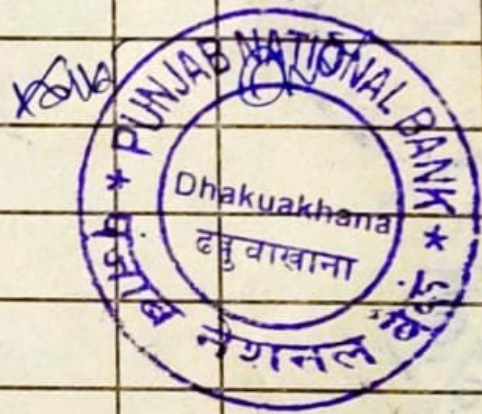 * PUNJAB NATIONAL BANK *
Dhakuakhana
ढकुवाखाना
पंजाब नेशनल बैंक